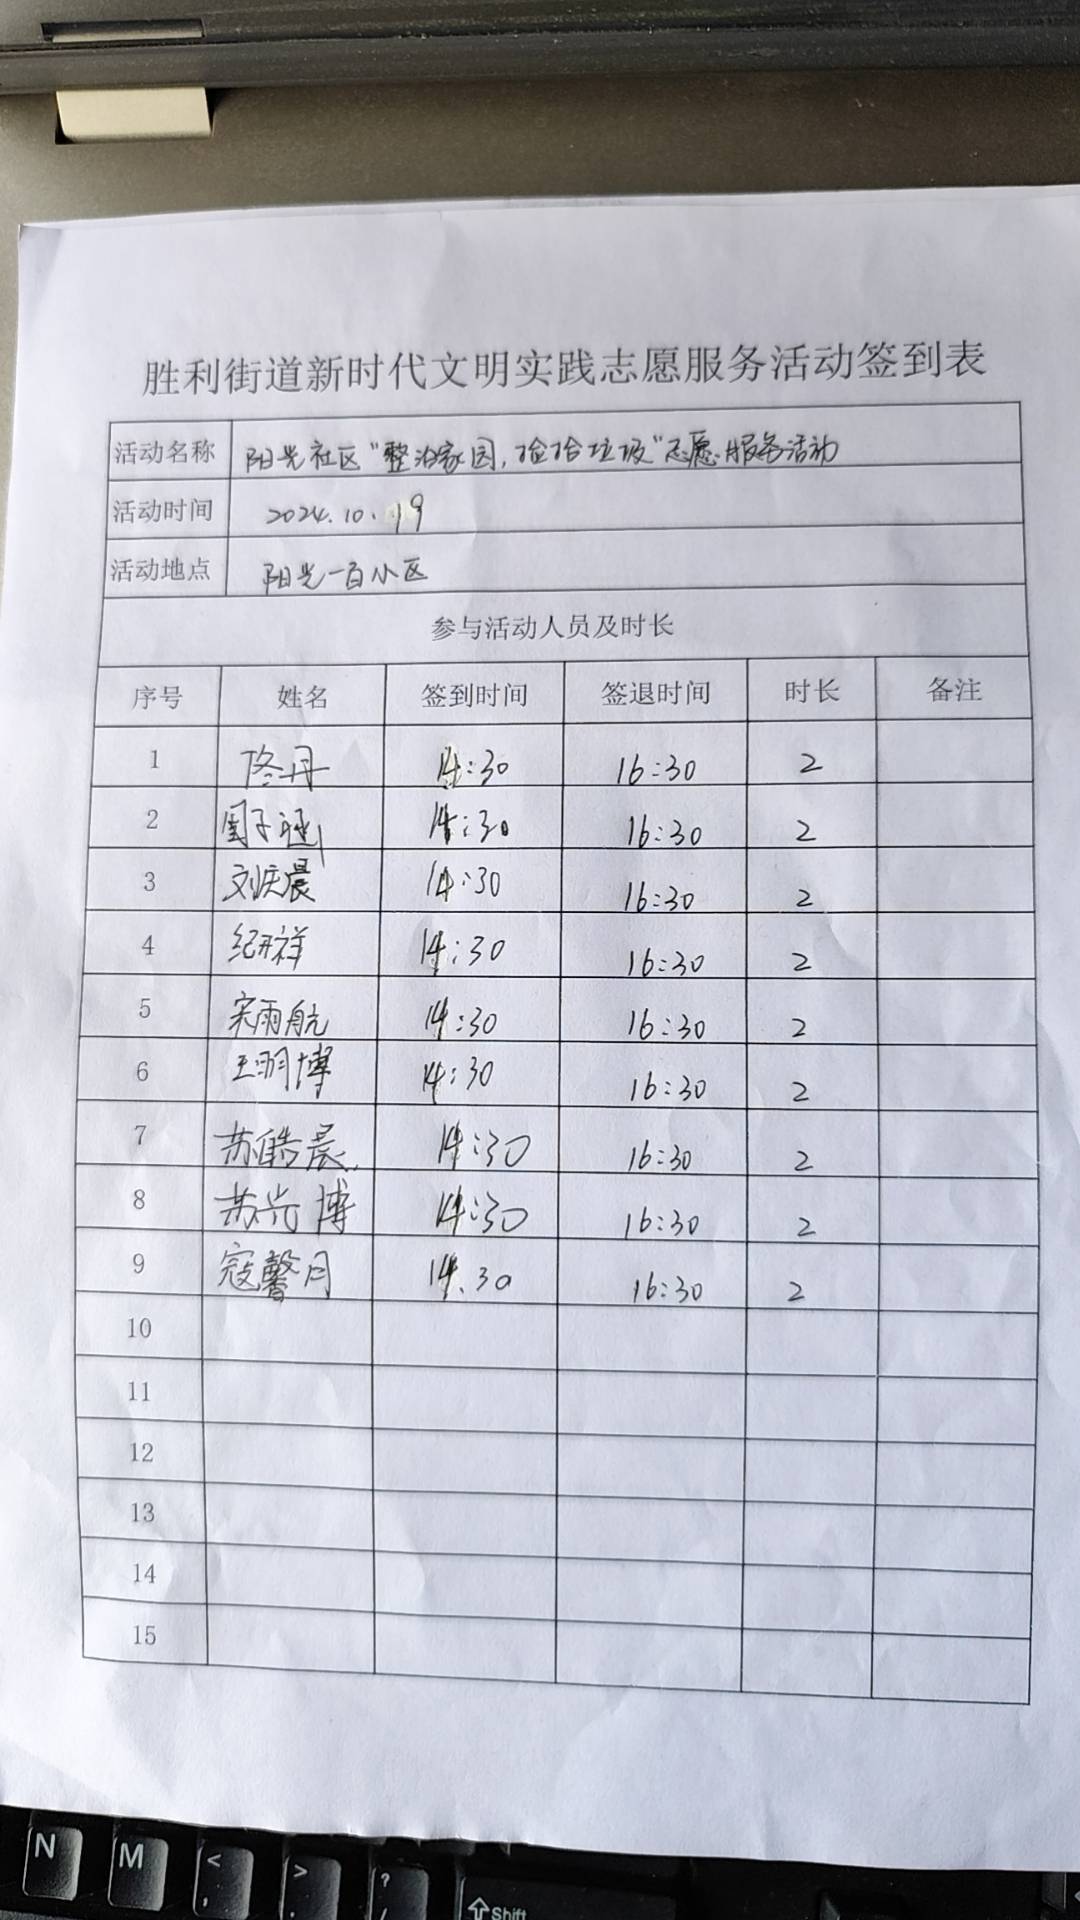 胜利街道新时代文明实践志愿服务活动签到表
活动名称 阳光社区“整治家园，捡拾垃圾”志愿服务活动
活动时间 2024.10.19
活动地点 阳光一百小区
参与活动人员及时长
序号 姓名 签到时间 签退时间 时长 备注
1 佟丹 14:30 16:30 2
2 周子涵 14:30 16:30 2
3 刘庆晨 14:30 16:30 2
4 纪开祥 14:30 16:30 2
5 宋雨航 14:30 16:30 2
6 王羽博 14:30 16:30 2
7 苏皓晨 14:30 16:30 2
8 苏光博 14:30 16:30 2
9 寇馨月 14.30 16:30 2
10
11
12
13
14
15
N M < , > . ? / Shift